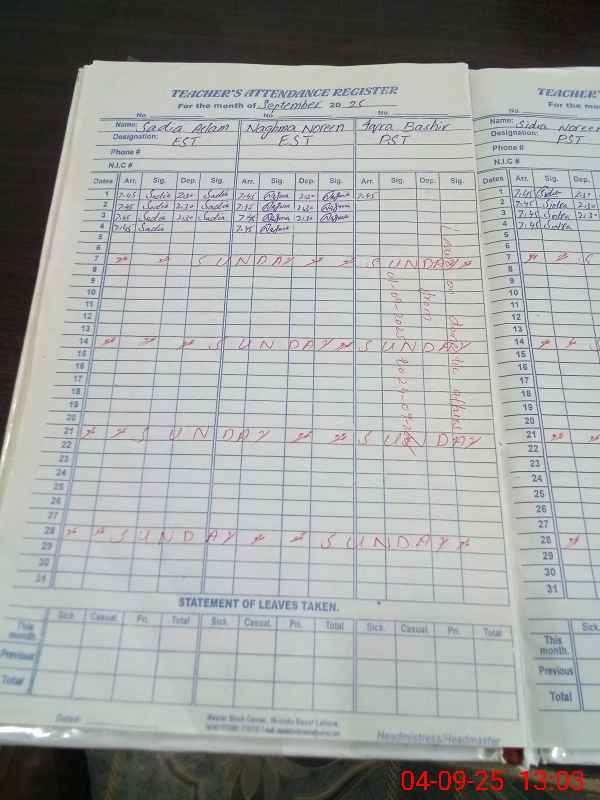 TEACHER'S ATTENDANCE REGISTER
For the month of September 2025
No. No. No.
Name: Sadia Aslam Naghma Noreen Iqra Bashir
Designation: EST EST PST
Phone #
N.I.C #
Dates Arr. Sig. Dep. Sig. Arr. Sig. Dep. Sig. Arr. Sig. Dep. Sig.
1 7:45 Sadia 2:30 Sadia 7:45 2:30 7:45
2 7:45 Sadia 2:30 Sadia 7:45 2:30
3 7:45 Sadia 2:30 Sadia 7:45 2:30
4 7:45 Sadia 7:45
5
6
7 SUNDAY SUNDAY
8
9
10
11
12
13
14 SUNDAY SUNDAY
15
16
17
18
19
20
21 SUNDAY SUNDAY
22
23
24
25
26
27
28 SUNDAY SUNDAY
29
30
31
from
STATEMENT OF LEAVES TAKEN.
Sick. Casual. Pri. Total Sick. Casual. Pri. Total Sick. Casual. Pri. Total
This month.
Previous
Total
Dated:
Headmistress/Headmaster
TEACHER'S
For the mon
No.
Name: Sidra Noreen
Designation: PST
Phone #
N.I.C #
Dates Arr. Sig. Dep.
1 7:45 Sidra 2:30
2 7:45 Sidra 2:30
3 7:45 Sidra 2:30
4 7:45 Sidra
5
6
7 S
8
9
10
11
12
13
14 S
15
16
17
18
19
20
21
22
23
24
25
26
27
28
29
30
31
Sick.
This month.
Previous
Total
04-09-25 13:03